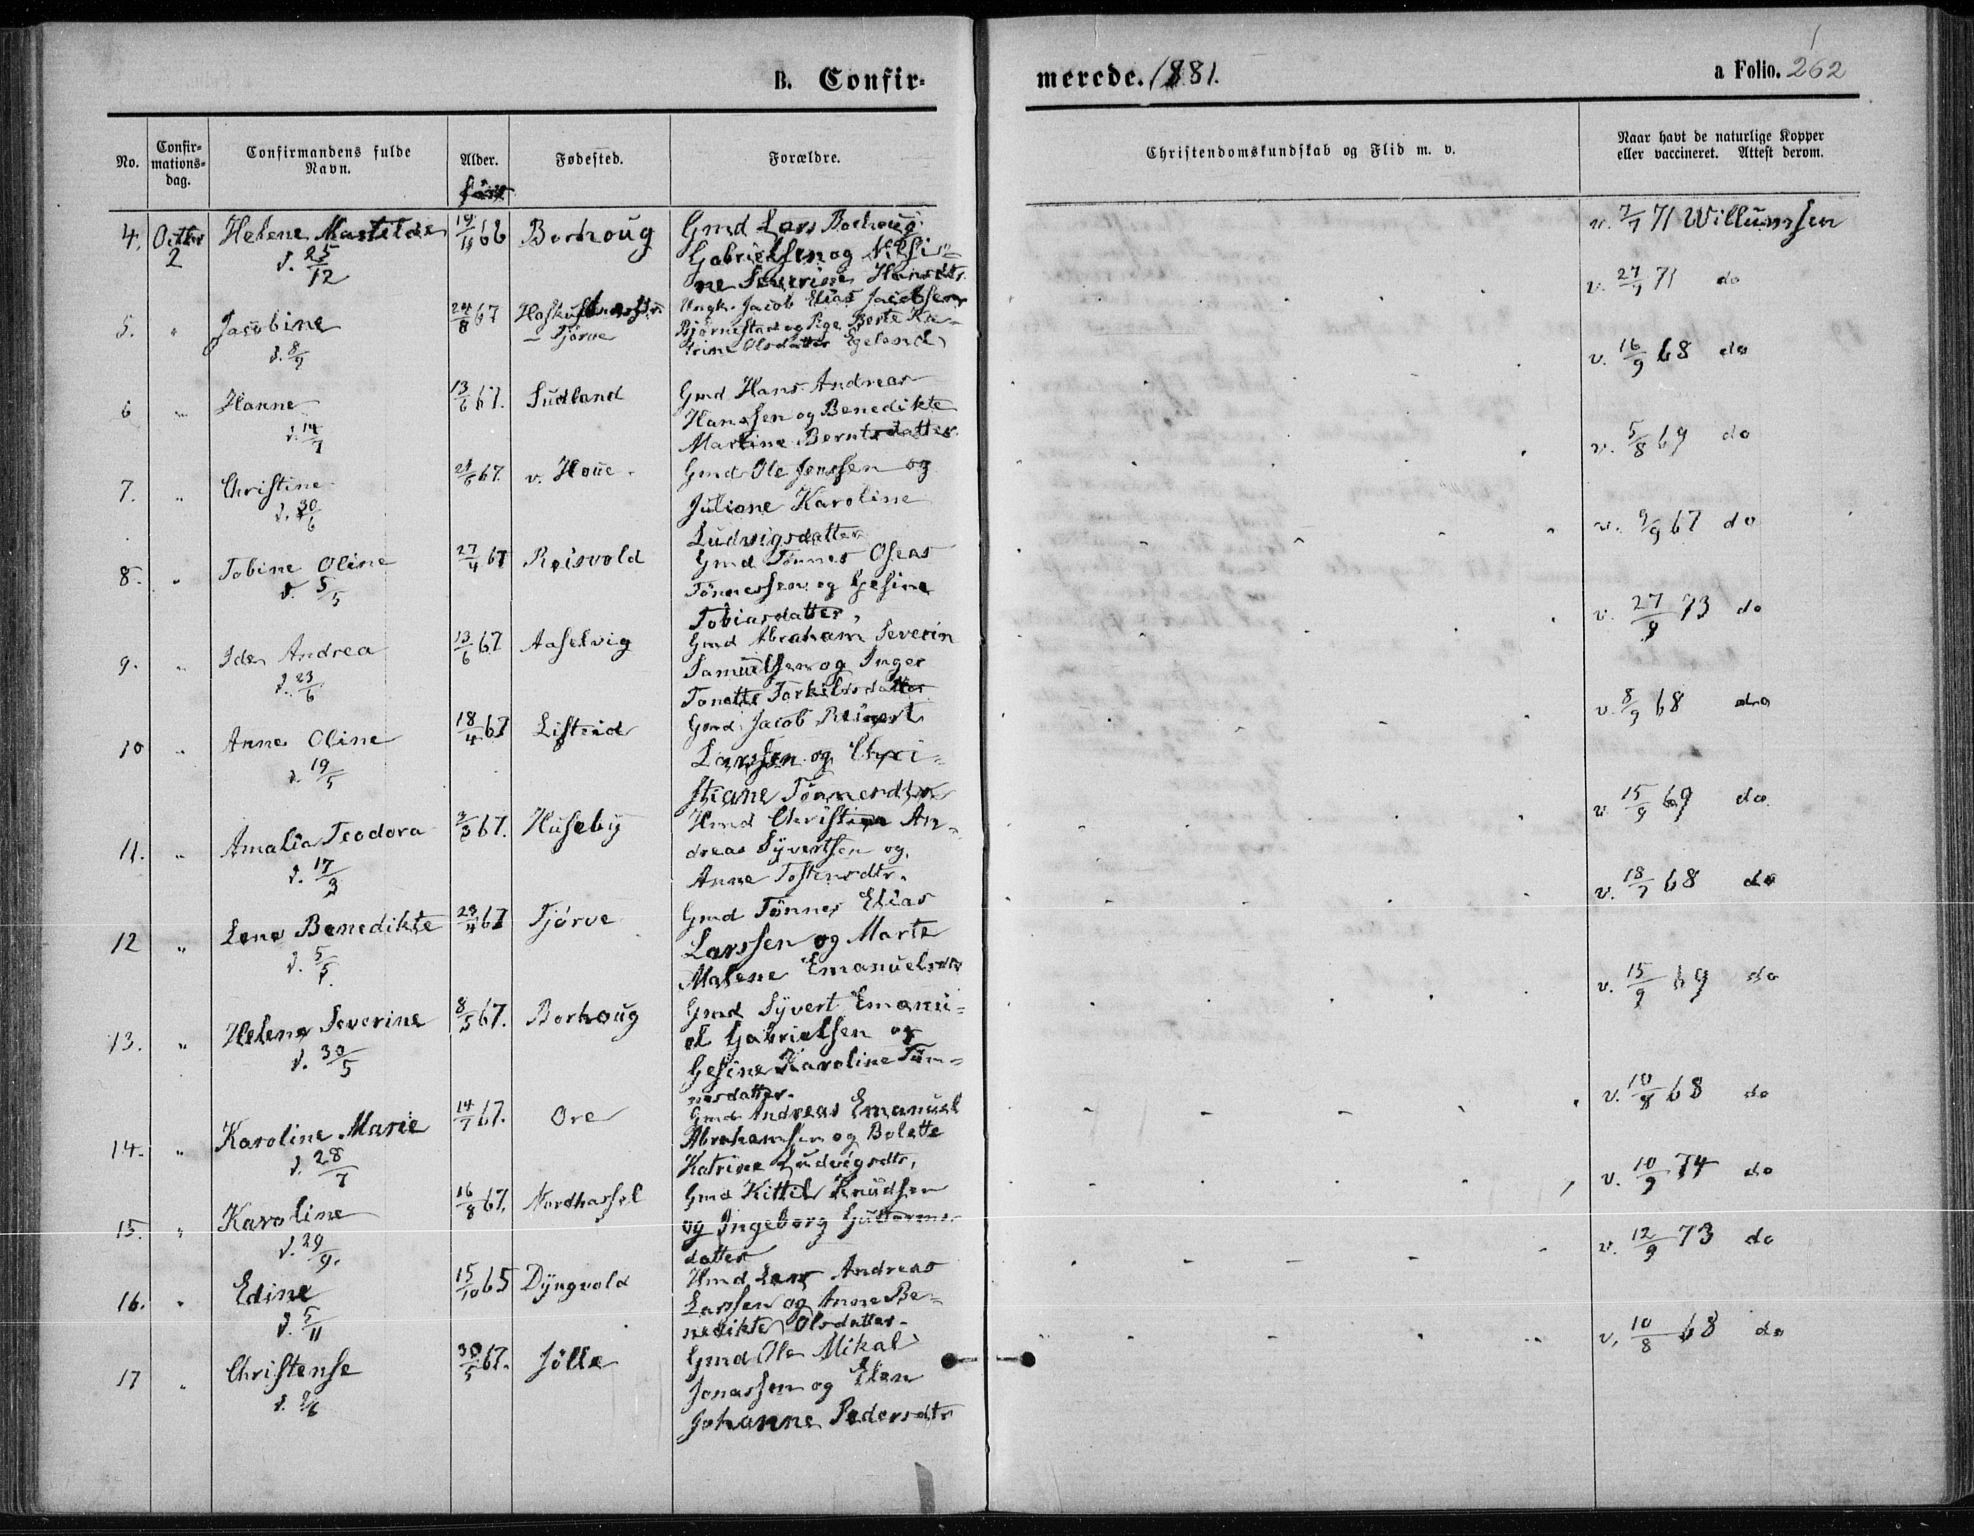 B. Confir-
merede. 1881.
a Folio. 262
No.
Confir-
mations-
dag.
Confirmandens fulde
Navn.
Alder.
Fødested.
Forældre.
Christendomskundskab og Flid m. v.
Naar havt de naturlige Kopper
eller vaccineret. Attest derom.
født
4. Octbr 2 Helene Mastilde d. 25/12 66 Borhoug
Gmd Lars Borhoug
Gabrielsen og
ne Severine Hansdtr.
v. 7/7 71 Willumsen
5. " Jacobine 24/8 67 Tjørve
Ungk. Jacob Elias Jacobsen
Bjørnestad og Pige Berte Ka-
trine Olsdatter Egeland
v. 27/7 71 do
6 " Hanne d. 14/7 13/6 67. Sudland
Gmd Hans Andreas
Hanssen og Benedikte
Martine Berntsdatter
v. 16/9 68 do
7. " Christine d. 30/6 67. v. Houe
Gmd Ole Jenssen og
Juliane Karoline
Ludvigsdatter
v. 5/8 69 do
8. " Tobine Oline d. 5/5 27/4 67 Reisvold
Gmd Tønnes Oseas
Tønnessen og Gesine
Tobiasdatter,
v. 9/9 67 do
9. " Ida Andrea d. 23/6 13/6 67 Aaselvig
Gmd Abraham Severin
Samuelsen og Inger
Tonette Torkilsdatter
v. 27/9 73 do
10 " Anne Oline d. 19/5 18/4 67 Listeid
Gmd. Jacob Reinert
Larssen og Chri-
stiane Tønnesdtr
v. 8/9 68 do
11. " Amalia Teodora d. 17/3 2/3 67. Huseby
Hmd Christian An-
dreas Syvertsen og
Anne Tostensdtr.
v. 15/9 69 do
12 " Lene Benedikte d. 5/5. 23/4 67 Tjörve
Gmd Tønnes Elias
Larssen og Marte
Malene Emanuelsdtr
v. 18/7 68 do
13. " Helene Severine d. 30/5 8/5 67. Borhoug
Gmd Syvert Emanu-
el Gabrielsen og
Gesine Karoline Tøn-
nesdatter.
v. 15/9 69 do
14. " Karoline Marie d. 28/7 14/7 67. Ore
Gmd Andreas Emanuel
Abrahamsen og Bolette
Katrine Ludvigsdtr,
v. 10/8 68 do
15. " Karoline d. 29/9. 16/8 67. Nordhassel
Gmd Kittil Knudsen
og Ingeborg Guttorms-
datter
v. 10/9 74 do
16. " Edine d. 5/11 15/10 65 Dyngvold
Hmd Lars Andreas
Larssen og Anne Be-
nedikte Olsdatter.
v. 12/9 73 do
17 " Christense d. 9/6 30/5 67. Jölle
Gmd Ole Mikal
Jonassen og Elen
Johanne Pedersdtr
v. 10/8 68 do